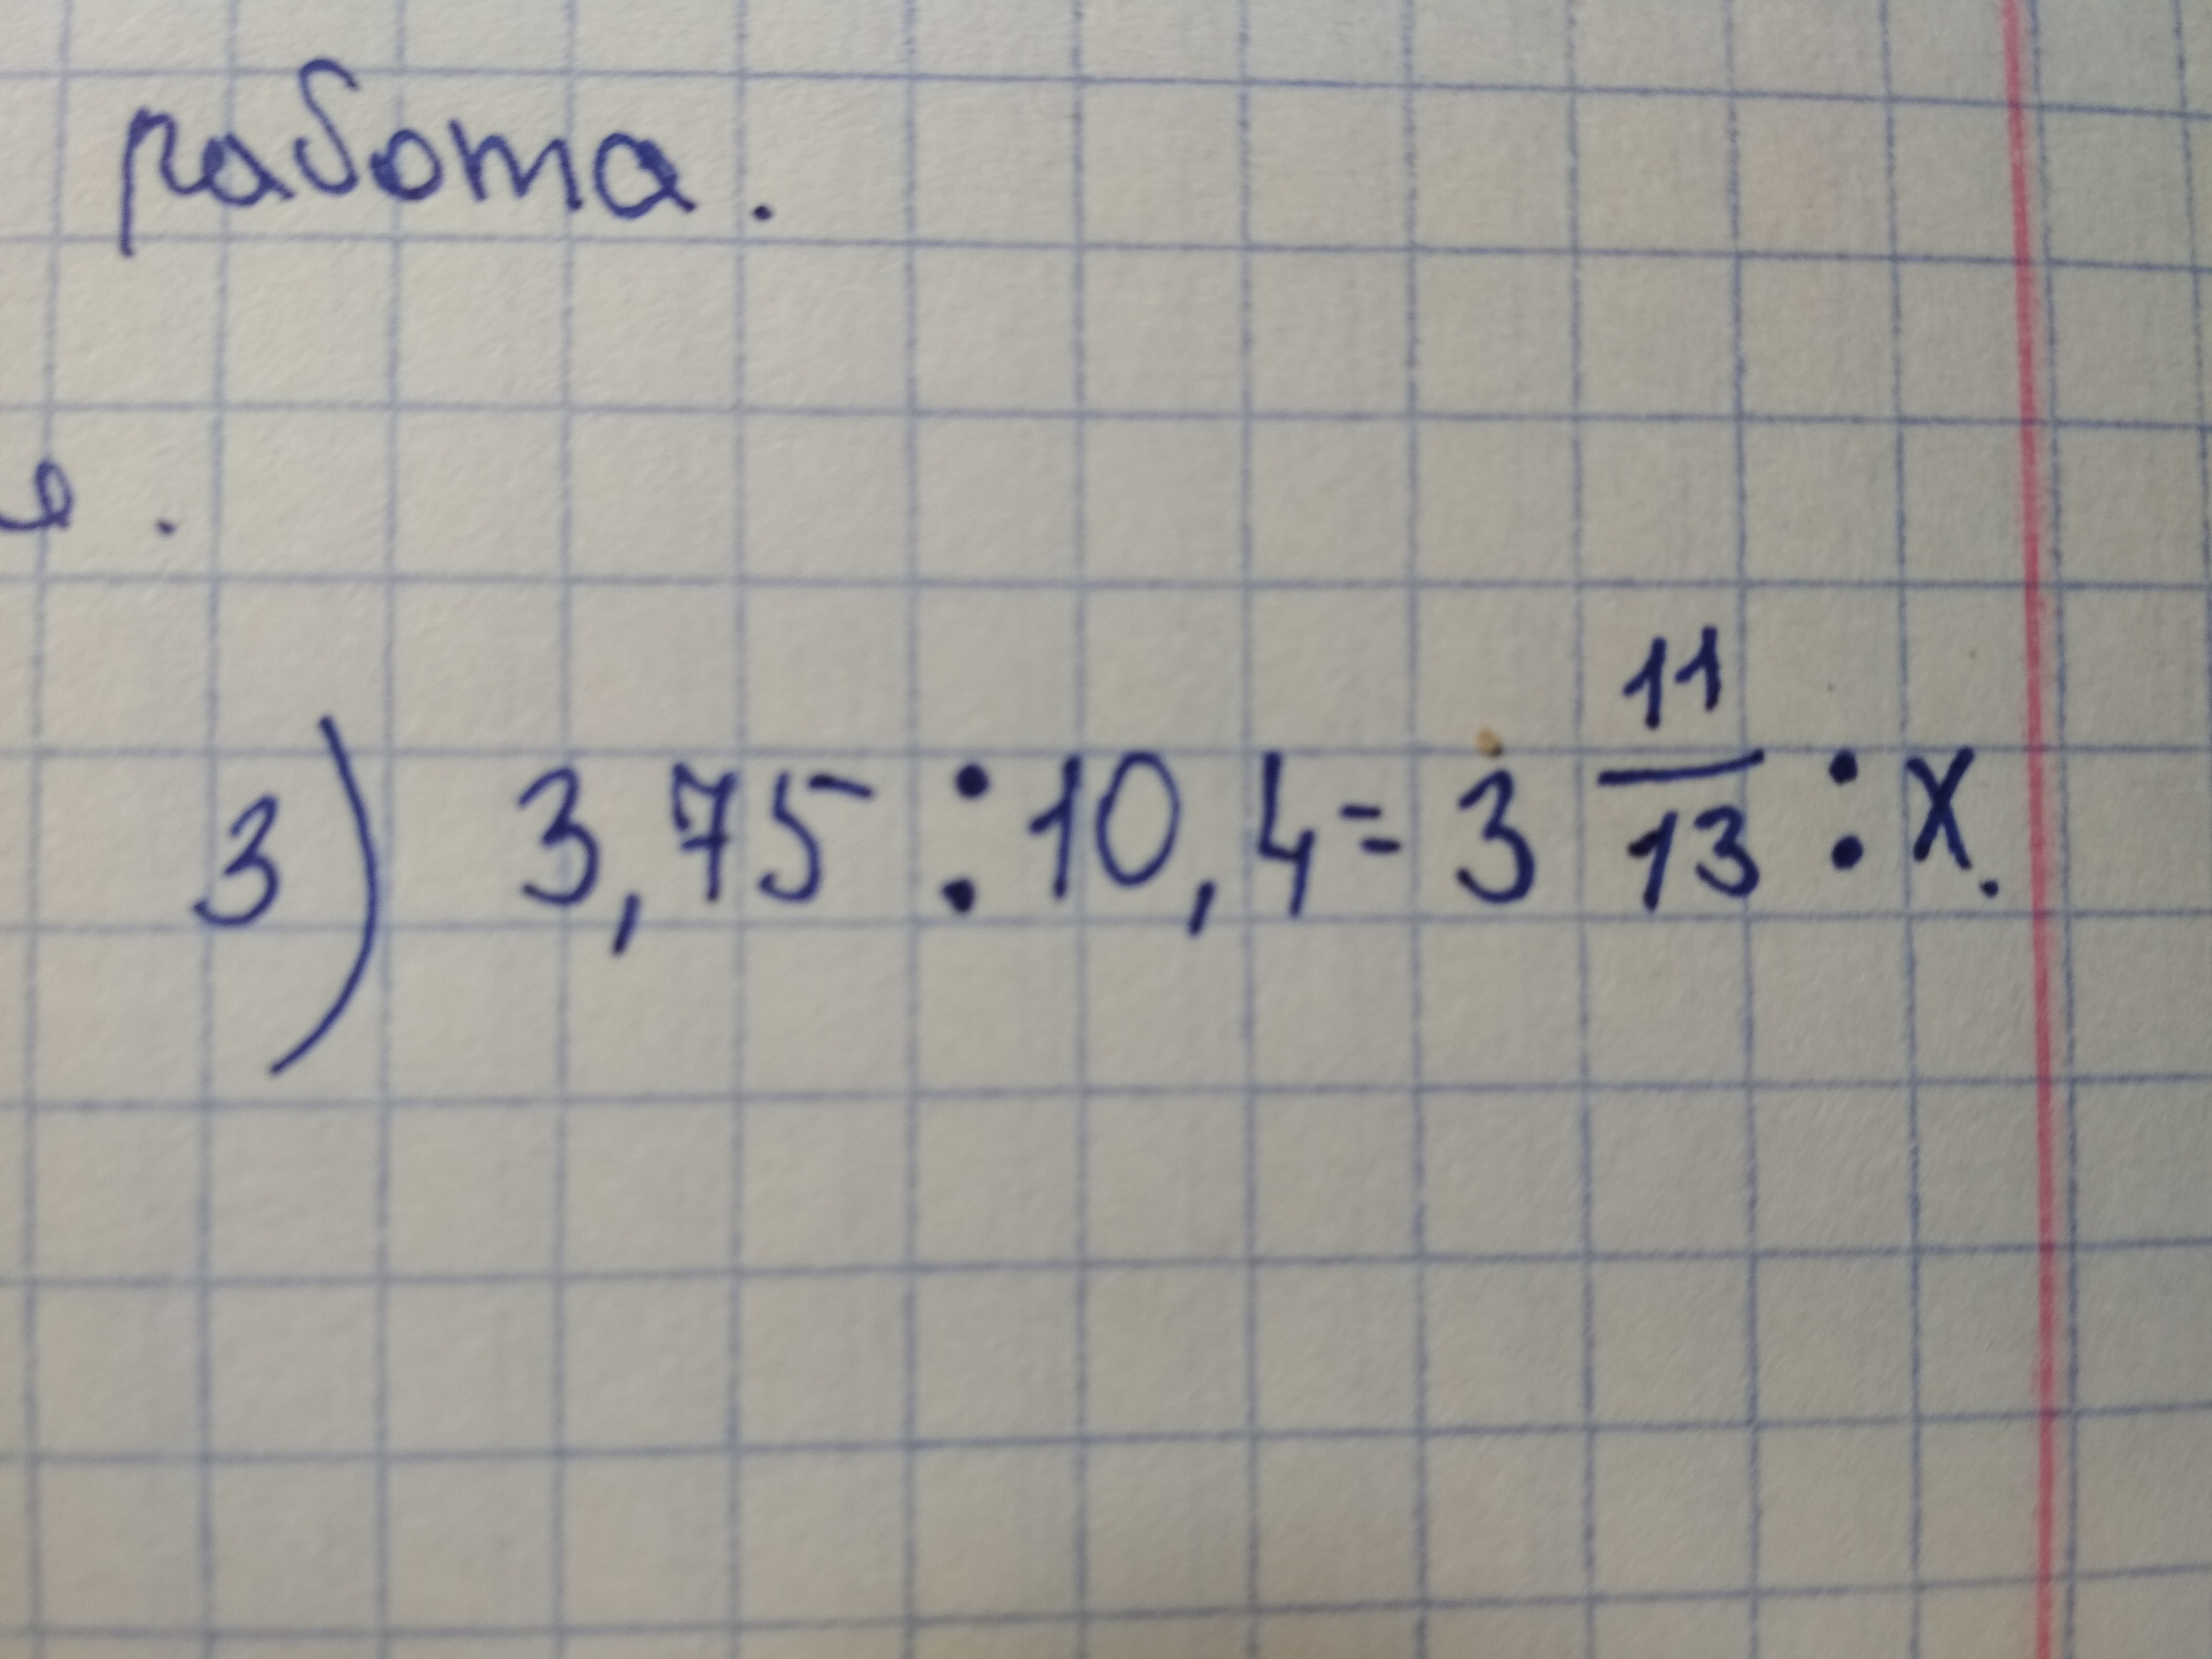 работа.
е.
3) 3,75 : 10,4 = 3 11/13 : x.